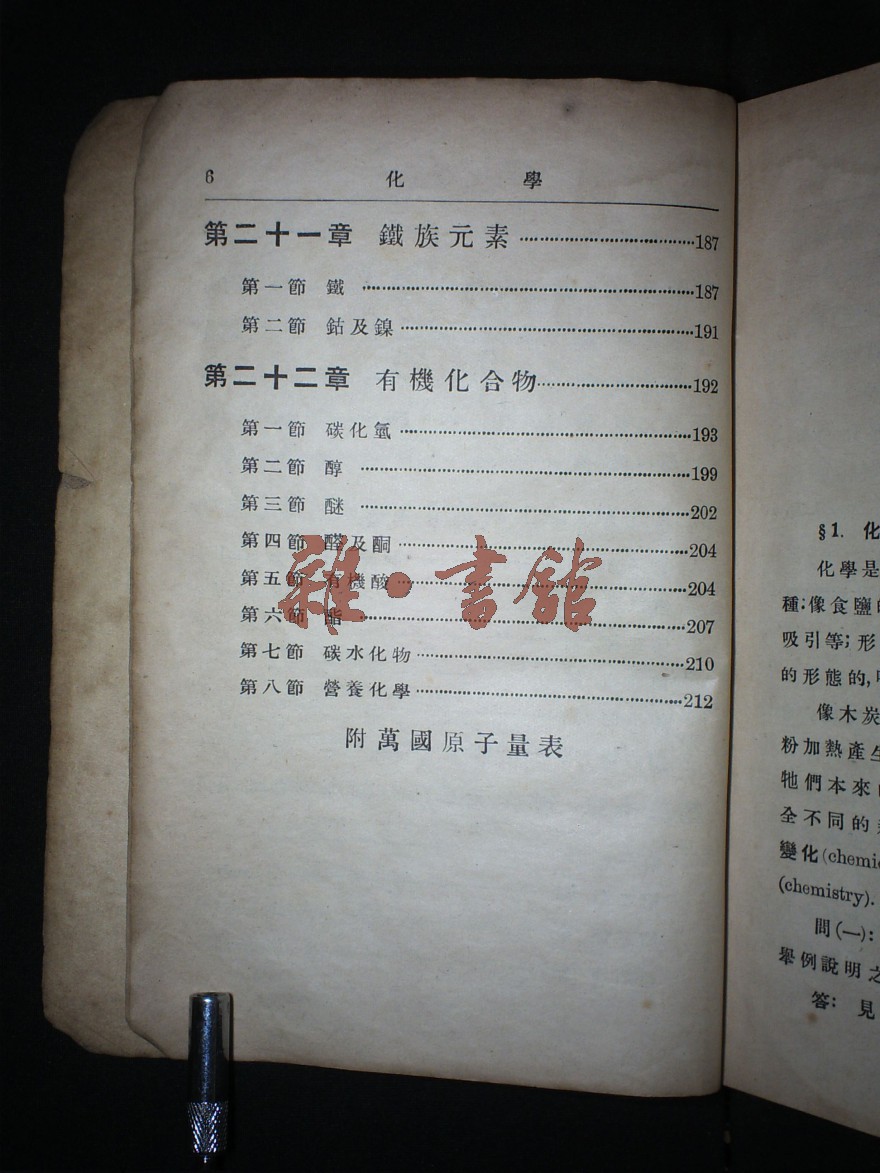 6 化學
第二十一章 鐵族元素……187
第一節 鐵……187
第二節 鈷及鎳……191
第二十二章 有機化合物……192
第一節 碳化氫……193
第二節 醇……199
第三節 醚……202
第四節 醛及酮……204
第五節 有機酸……204
第六節 酯……207
第七節 碳水化物……210
第八節 營養化學……212
附萬國原子量表
雜·書館
§1. 化
化學是
種;像食鹽
吸引等;形
的形態的,
像木炭
粉加熱產生
牠們本來
全不同的
變化(chemi
(chemistry).
問(一):
舉例說明之
答: 見